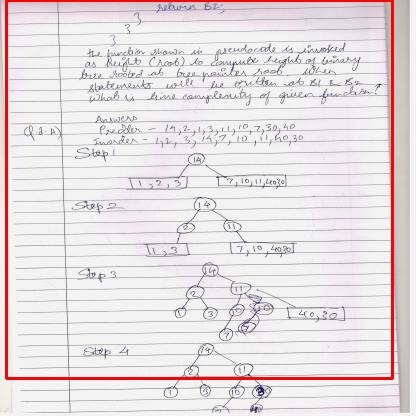 return B2;
}
}
}
the function shown in pseudocode is invoked
as height (root) to compute height of binary
tree rooted at tree pointer root. When
statements will be written at B1 & B2
What is time complexity of given function?
Answers
Q.1.A) Preorder - 14,2,1,3,11,10,7,30,40
Inorder - 1,2,3,14,7,10,11,40,30
Step 1
14
1, 2, 3 7,10,11,40,30
Step 2
14
2 11
1, 3 7, 10, 40,30
Step 3
14
2 11
1 3 10 40,30
7
Step 4
14
2 11
1 3 10